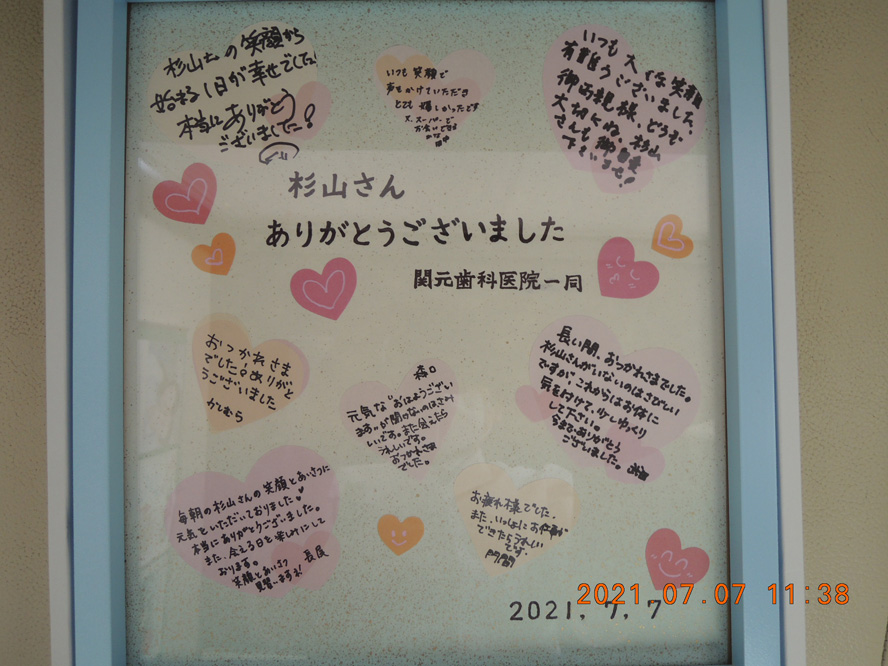 杉山さんの笑顔から
始まる1日が幸せでした!
本当にありがとう
ございました!
いつも笑顔で
声をかけていただき
とても嬉しかったです
スーパーで
お会いできる
かな
いつも大きな笑顔
有難うございました。
御両親様、どうぞ
大切にね、杉山
さんも御自愛
下さいませ!
杉山さん
ありがとうございました
関元歯科医院一同
おつかれさま
でした。ありがと
うございました
かしむら
森口
元気な"おはようござい
ます"が聞けないのはさみ
しいです。また会えたら
うれしいです。
おつかれさま
でした。
長い間、おつかれさまでした。
杉山さんがいないのはさびしい
ですが、これからはお体に
気を付けて、少しゆっくり
して下さい。
今までありがとう
ございました。
毎朝の杉山さんの笑顔とあいさつに
元気をいただいておりました♥
本当にありがとうございました。
また、会える日を楽しみにして
おります。
長展
笑顔とあいさつ
見習います!
お疲れ様でした。
また、いっしょにお仕事が
できたらうれしい
です。
門間
2021.7.7
2021.07.07 11:38